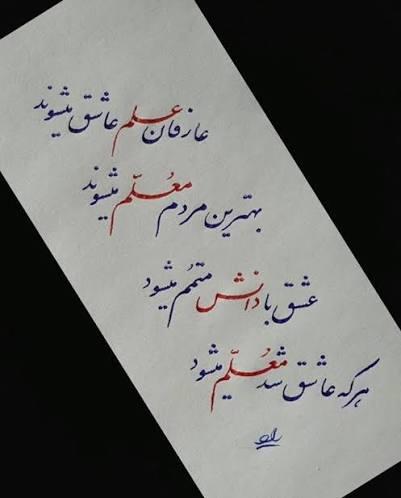 عارفان علم عاشق میشوند
بهترین مردم معلّم میشوند
عشق با دانش متمم میشود
هرکه عاشق شد معلّم میشود